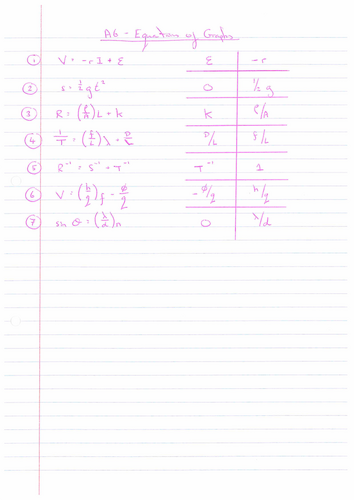 A6 - Equation of Graphs
① V = -rI + ε ε -r
② s = ½ g t² 0 ½ g
③ R = (ρ/A) L + k k ρ/A
④ 1/T = (f/L) λ - D/L D/L f/L
⑤ R⁻¹ = S⁻¹ + T⁻¹ T⁻¹ 1
⑥ V = (h/2) f - φ/2 -φ/2 h/2
⑦ sin θ = (λ/d) n 0 λ/d